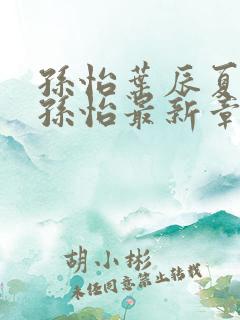 孫怡葉辰夏
孫怡最新章
胡小彬
未经同意禁止转载